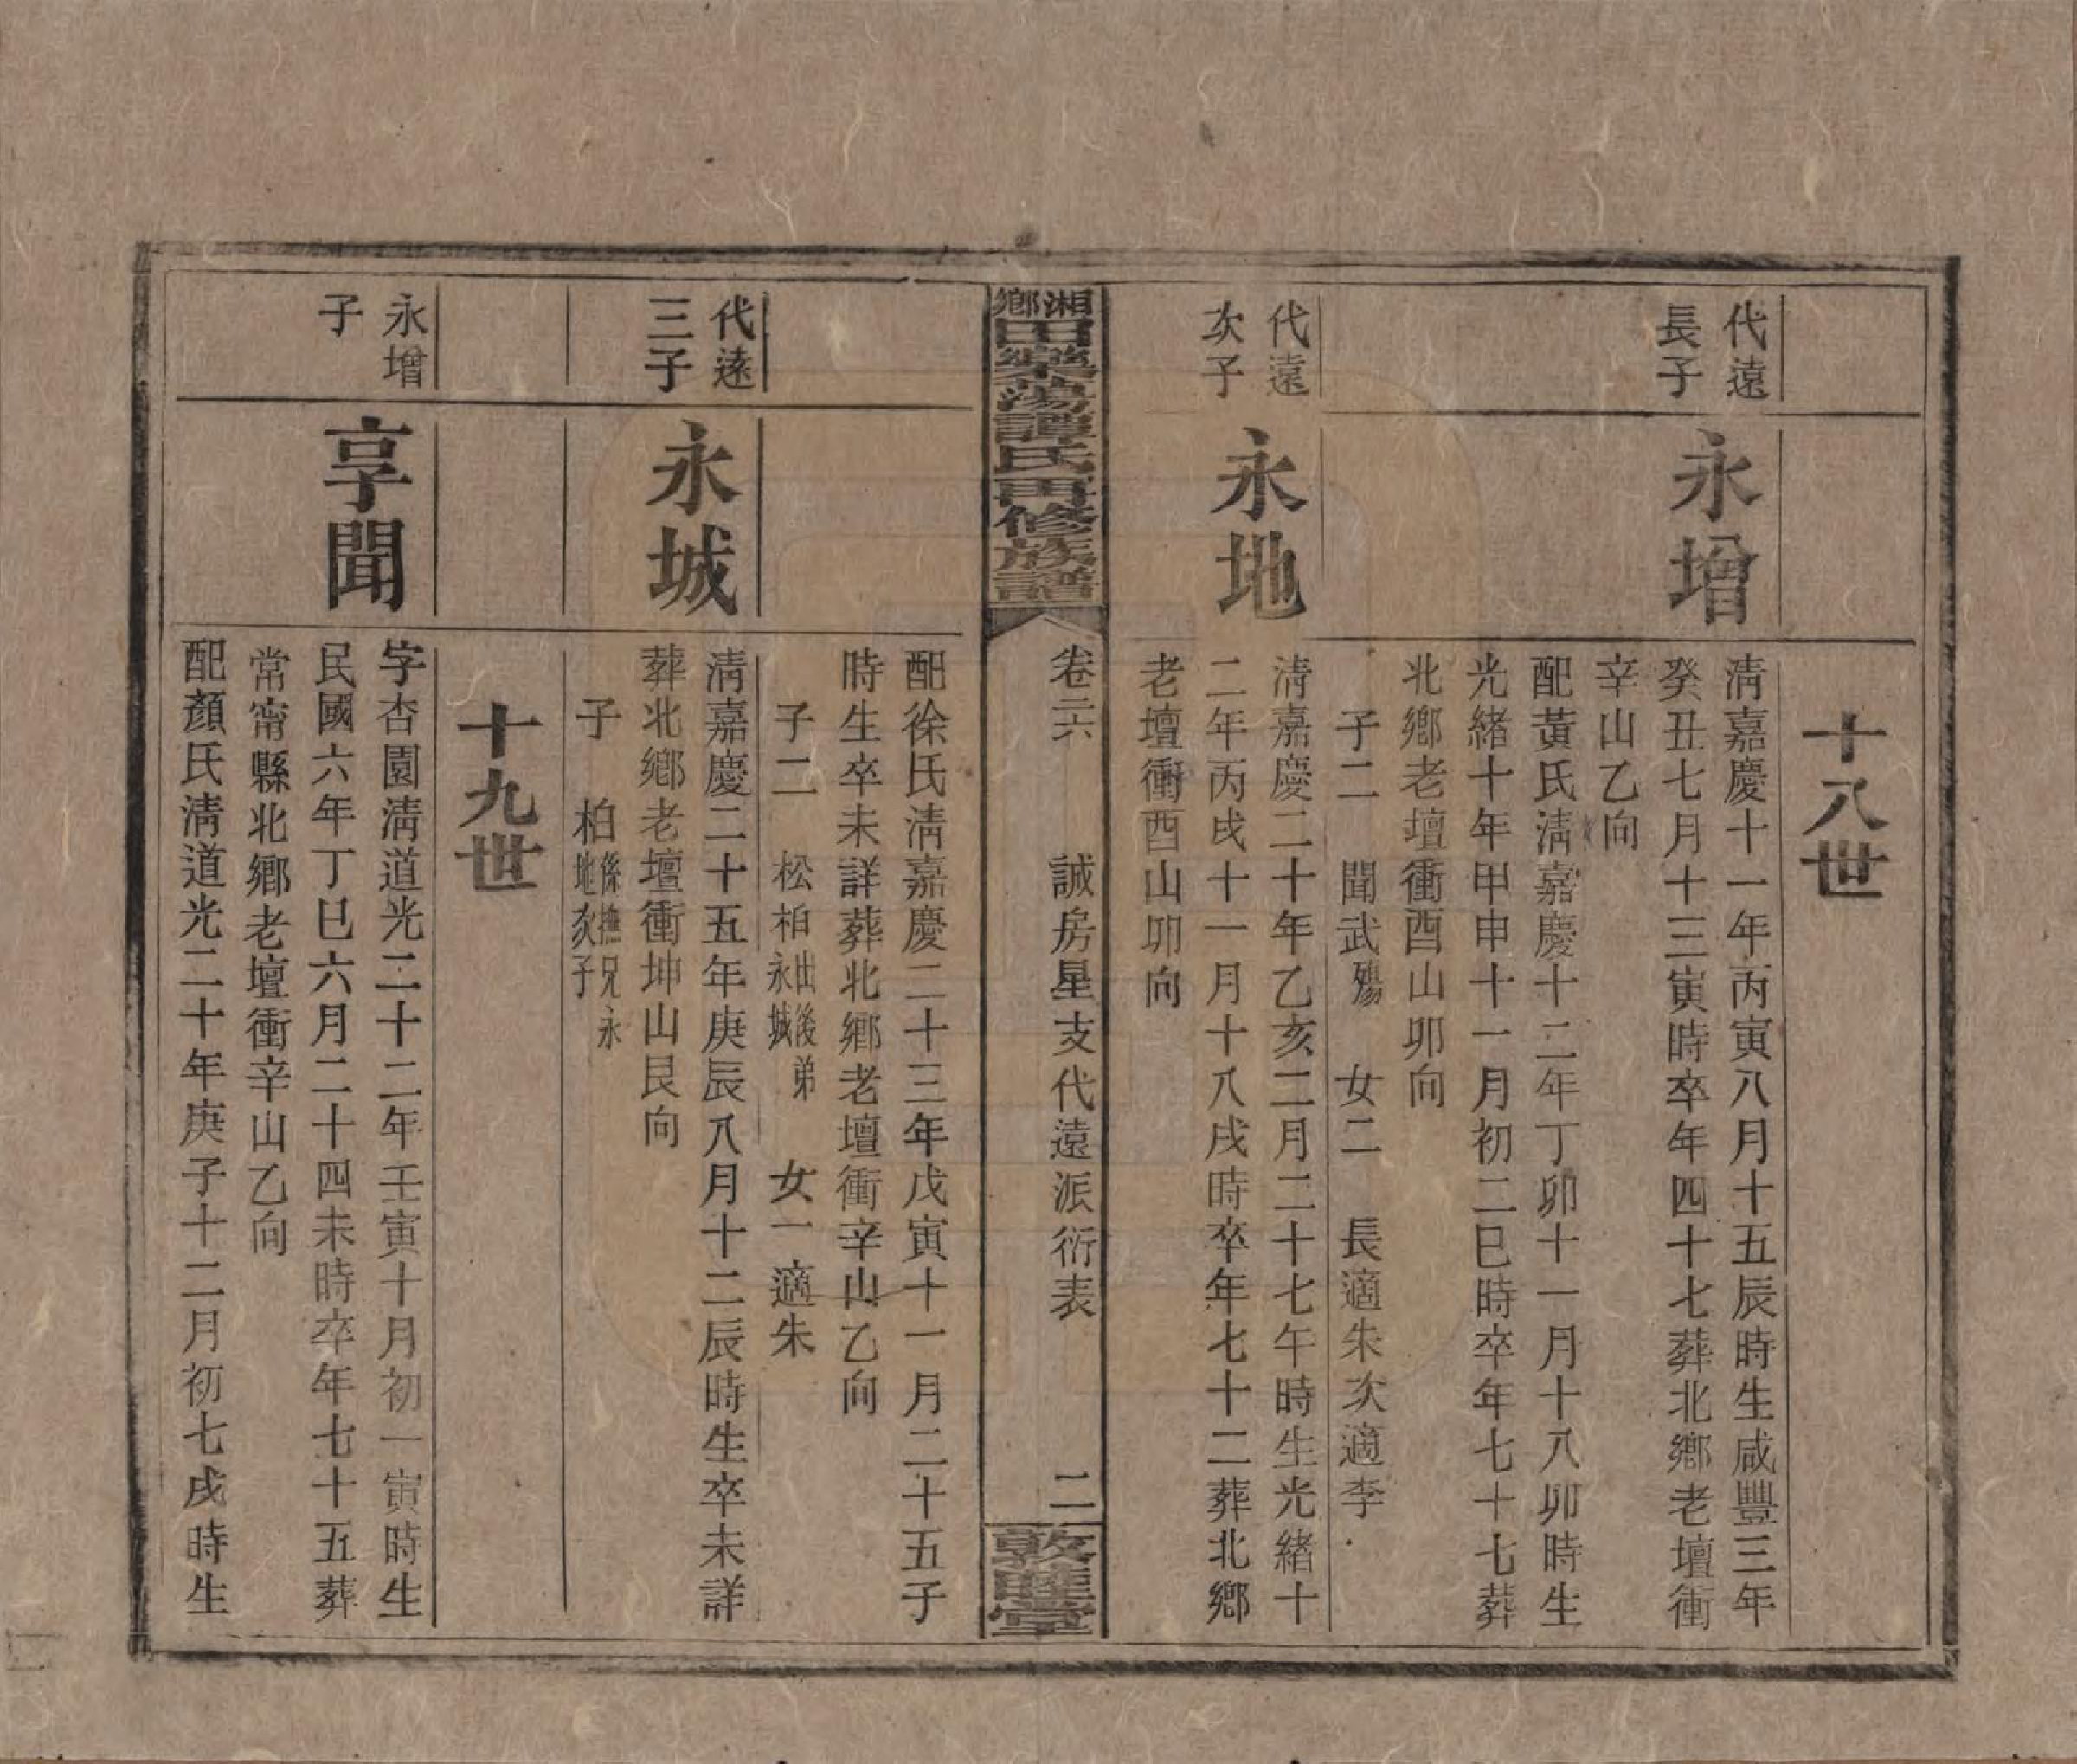 十八世
代遠
長子
永增
清嘉慶十一年丙寅八月十五辰時生咸豐三年
癸丑七月十三寅時卒年四十七葬北鄉老壇衝
辛山乙向
配黃氏清嘉慶十二年丁卯十一月十八卯時生
光緒十年甲申十一月初二巳時卒年七十七葬
北鄉老壇衝酉山卯向
子二 聞武殤 女二 長適朱次適李
代遠
次子
永地
清嘉慶二十年乙亥二月二十七午時生光緒十
二年丙戌十一月十八戌時卒年七十二葬北鄉
老壇衝酉山卯向
湘鄉田樂蕩譚氏再修族譜
卷二六 誠房星支代遠派衍表 二
敦睦堂
配徐氏清嘉慶二十三年戊寅十一月二十五子
時生卒未詳葬北鄉老壇衝辛山乙向
子二 松柏出後弟永城 女一適朱
代遠
三子
永城
清嘉慶二十五年庚辰八月十二辰時生卒未詳
葬北鄉老壇衝坤山艮向
子 柏係撫兄永地次子
十九世
永增
子
享聞
字杏園清道光二十二年壬寅十月初一寅時生
民國六年丁巳六月二十四未時卒年七十五葬
常甯縣北鄉老壇衝辛山乙向
配顏氏清道光二十年庚子十二月初七戌時生